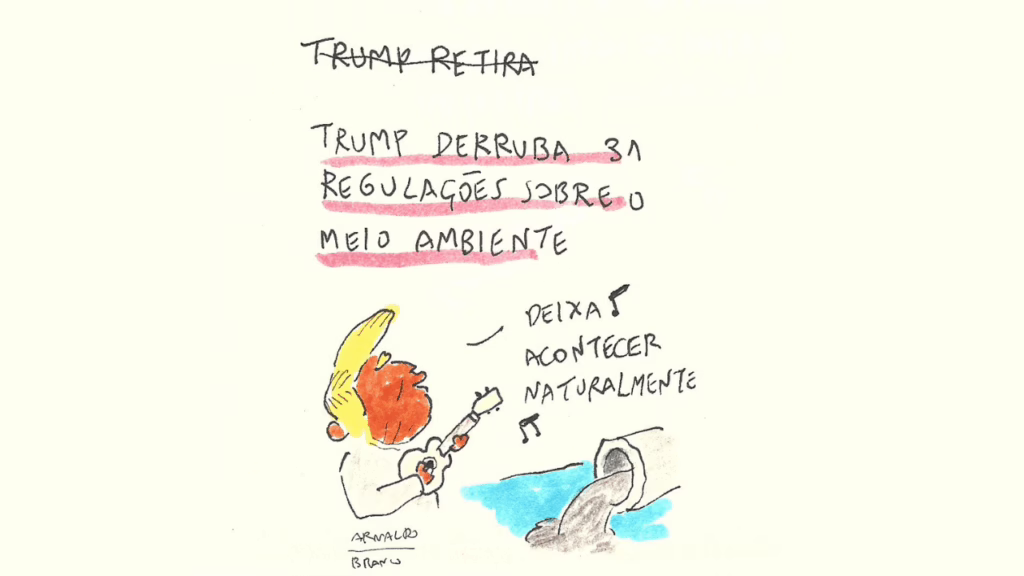 TRUMP RETIRA
TRUMP DERRUBA 31
REGULAÇÕES SOBRE O
MEIO AMBIENTE
DEIXA
ACONTECER
NATURALMENTE
ARNALDO
BRANCO